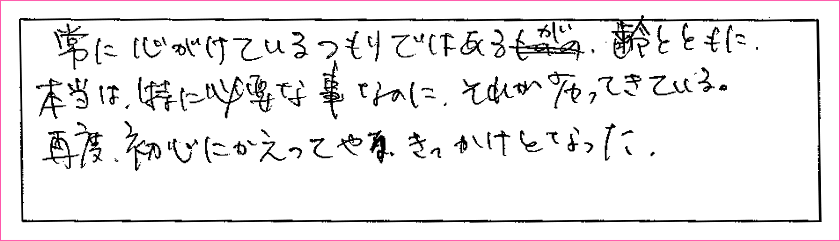 常に心がけているつもりではあるが、齢とともに、
本当は、特に必要な事なのに、それが劣ってきている。
再度、初心にかえってやる、きっかけとなった。